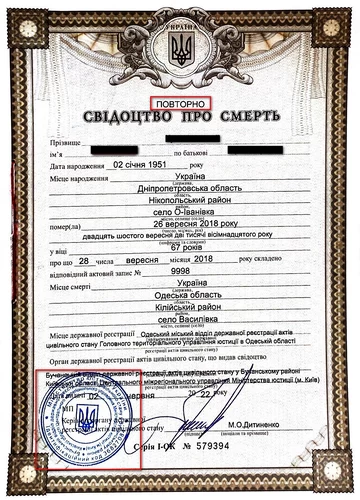 УКРАЇНА
ПОВТОРНО
СВІДОЦТВО ПРО СМЕРТЬ
Прізвище
ім'я по батькові
Дата народження 02 січня 1951 року
Місце народження Україна
(держава,
Дніпропетровська область
Нікопольський район
село О-Іванівка
помер(ла) 26 вересня 2018 року
двадцять шостого вересня дві тисячі вісімнадцятого року
(цифрами та словами)
у віці 67 років
про що 28 числа вересня місяця 2018 року складено
відповідний актовий запис № 9998
Місце смерті Україна
(держава,
Одеська область
Кілійський район
село Василівка
Місце державної реєстрації Одеський міський відділ державної реєстрації актів
цивільного стану Головного територіального управління юстиції в Одеській області
реєстрації актів цивільного стану)
Орган державної реєстрації актів цивільного стану, що видав свідоцтво
Бучанський відділ державної реєстрації актів цивільного стану у Бучанському районі
Київської області Центрального міжрегіонального управління Міністерства юстиції (м. Київ)
Дата видачі 02 червня 20 22 року
МП
Керівник органу державної
реєстрації актів цивільного стану М.О.Дитиненко
Серія І-ОК № 579394